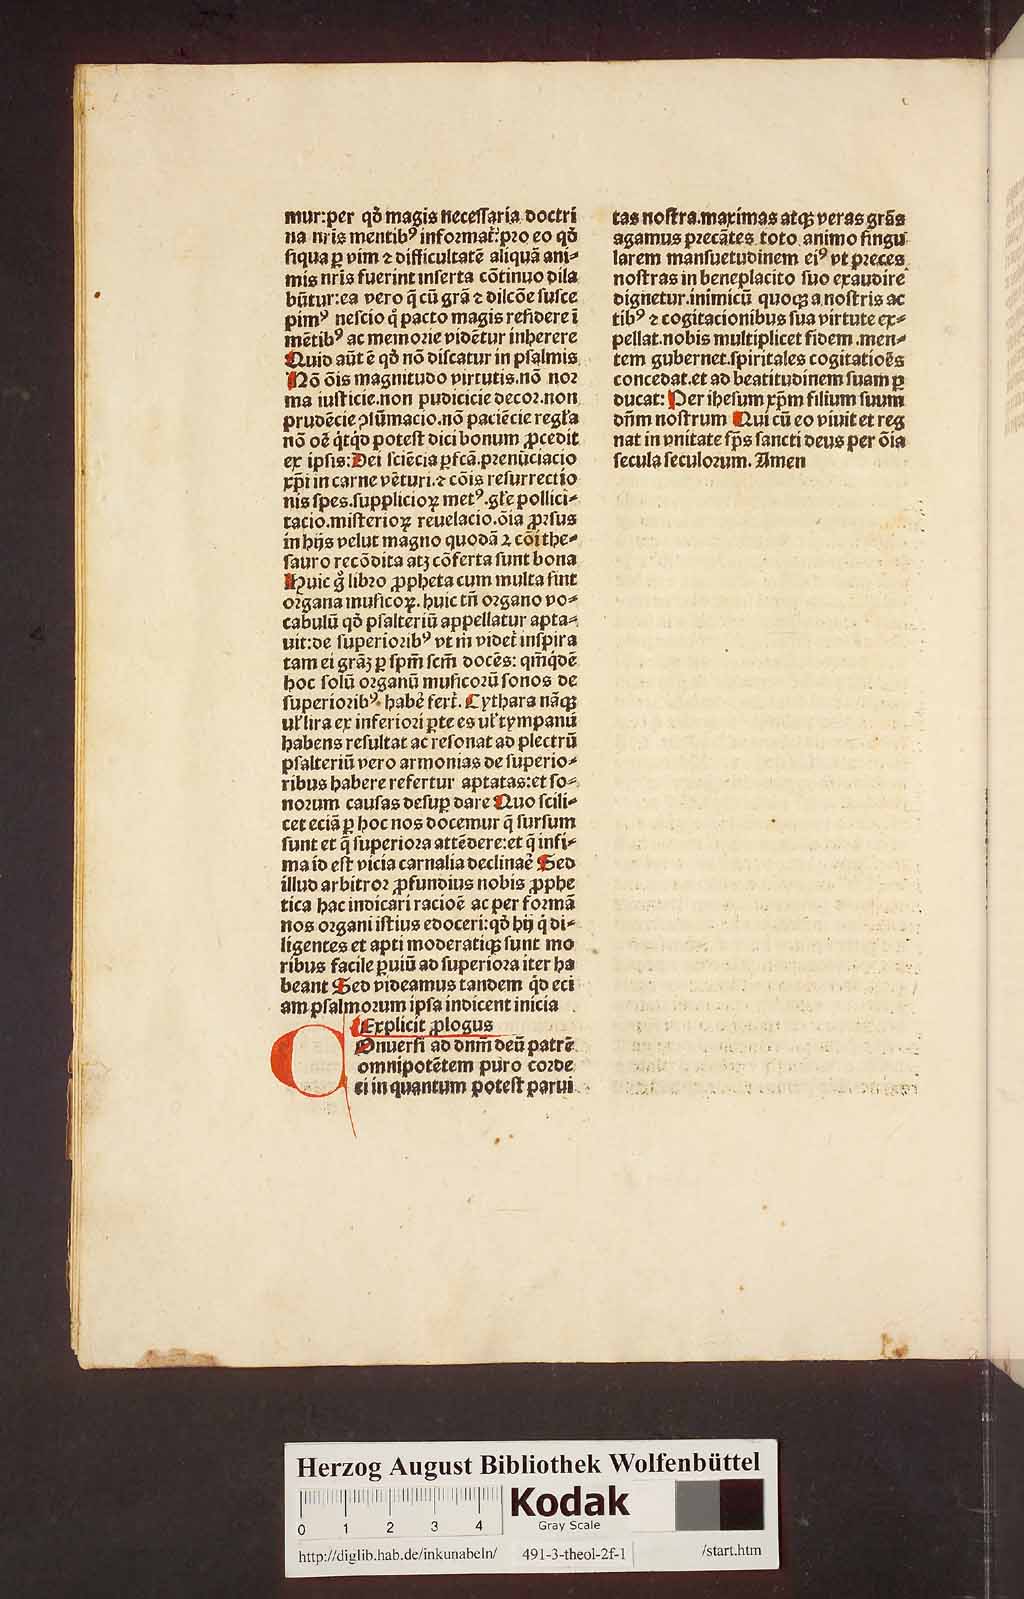 mur:per qđ magis necessaria doctri
na nr̄is mentibꝰ informat᷑:pro eo qđ
siqua ꝑ vim ⁊ difficultatē aliquā ani⸗
mis nr̄is fuerint inserta cōtinuo dila
būtur:ea vero q̄ cū grā ⁊ dilcōe susce
pimꝰ nescio qͦ pacto magis residere ī
mētibꝰ ac memorie vidētur inherere
Quid aūt ē qđ nō discatur in psalmis
Nō ōis magnitudo virtutis.nō nor
ma iusticie.non pudicicie decor.non
prudēcie ꝯsūmacio.nō paciēcie regl̄a
nō oē qͥtqͥd potest dici bonum ꝓcedit
ex ipsis:Dei sciēcia ꝑfcā.prenūciacio
xp̄i in carne vēturi.⁊ cōis resurrectio
nis spes.supplicioꝝ metꝰ.gl̄e pollici⸗
tacio.misterioꝝ reuelacio.ōia ꝓrsus
in hijs velut magno quodā ⁊ cōi the⸗
sauro recōdita atqꝫ cōferta sunt bona
Huic gͦ libro ꝓpheta cum multa sint
organa musicoꝝ. huic tn̄ organo vo⸗
cabulū qđ psalteriū appellatur apta⸗
uit:de superioribꝰ vt m̄ videt᷑ inspira
tam ei grāꝫ ꝑ spm̄ scm̄ docēs: qm̄qͥdē
hoc solū organū musicorū sonos de
superioribꝰ habē fert᷑. Cythara nāqꝫ
ul̓ lira ex inferiori ꝑte es ul̓ tympanū
habens resultat ac resonat ad plectrū
psalteriū vero armonias de superio⸗
ribus habere refertur aptatas:et so⸗
norum causas desuꝑ dare Quo scili⸗
cet eciā ꝑ hoc nos docemur q̄ sursum
sunt et q̄ superiora attēdere:et q̄ infi⸗
ma id est vicia carnalia declinaē Sed
illud arbitror ꝓfundius nobis ꝓphe
tica hac indicari racioē ac per formā
nos organi istius edoceri:qđ hij qͥ di⸗
ligentes et apti moderatiqꝫ sunt mo
ribus facile ꝑuiū ad superiora iter ha
beant Sed videamus tandem qͥd eci
am psalmorum ipsa indicent inicia
Explicit ꝓlogus
COnuersi ad dnm̄ deū patrē
omnipotētem puro corde
ei in quantum potest parui
tas nostra.maximas atqꝫ veras grās
agamus precātes toto animo singu
larem mansuetudinem eiꝰ vt preces
nostras in beneplacito suo exaudire
dignetur.inimicū quoqꝫ a nostris ac
tibꝰ ⁊ cogitacionibus sua virtute ex⸗
pellat.nobis multiplicet fidem .men⸗
tem gubernet.spiritales cogitatioēs
concedat.et ad beatitudinem suam ꝑ
ducat: Per ihesum xp̄m filium suum
dn̄m nostrum Qui cū eo viuit et reg
nat in vnitate sp̄s sancti deus per ōia
secula seculorum. Amen
Herzog August Bibliothek Wolfenbüttel
0 1 2 3 4
Kodak
Gray Scale
http://diglib.hab.de/inkunabeln/ 491-3-theol-2f-1 /start.htm